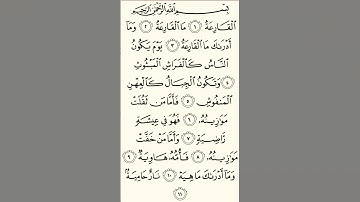 بِسْمِ ٱللَّهِ ٱلرَّحْمَٰنِ ٱلرَّحِيمِ
ٱلْقَارِعَةُ ١ مَا ٱلْقَارِعَةُ ٢ وَمَآ
أَدْرَىٰكَ مَا ٱلْقَارِعَةُ ٣ يَوْمَ يَكُونُ
ٱلنَّاسُ كَٱلْفَرَاشِ ٱلْمَبْثُوثِ
٤ وَتَكُونُ ٱلْجِبَالُ كَٱلْعِهْنِ
ٱلْمَنفُوشِ ٥ فَأَمَّا مَن ثَقُلَتْ
مَوَٰزِينُهُۥ ٦ فَهُوَ فِى عِيشَةٍ
رَّاضِيَةٍ ٧ وَأَمَّا مَنْ خَفَّتْ
مَوَٰزِينُهُۥ ٨ فَأُمُّهُۥ هَاوِيَةٌ ٩
وَمَآ أَدْرَىٰكَ مَا هِيَهْ ١٠ نَارٌ حَامِيَةٌۢ
١١